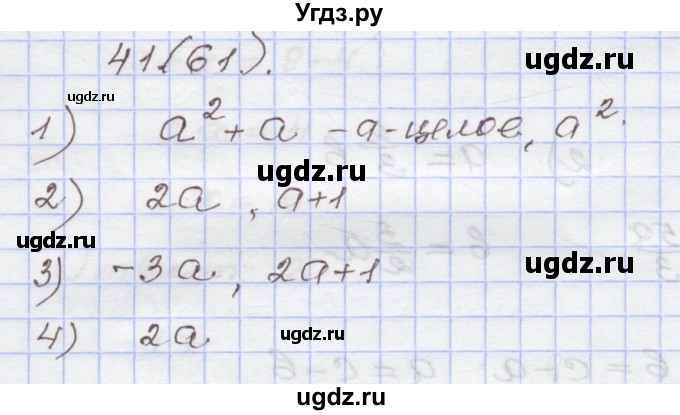 Угдз.ру
41.(61).
1) a² + a - a - целое, a².
2) 2a, a+1
3) -3a, 2a+1
4) 2a
ugdz.ru
ugdz.ru
ugdz.ru
ugdz.ru
ugdz.ru
ugdz.ru
ugdz.ru
ugdz.ru
ugdz.ru